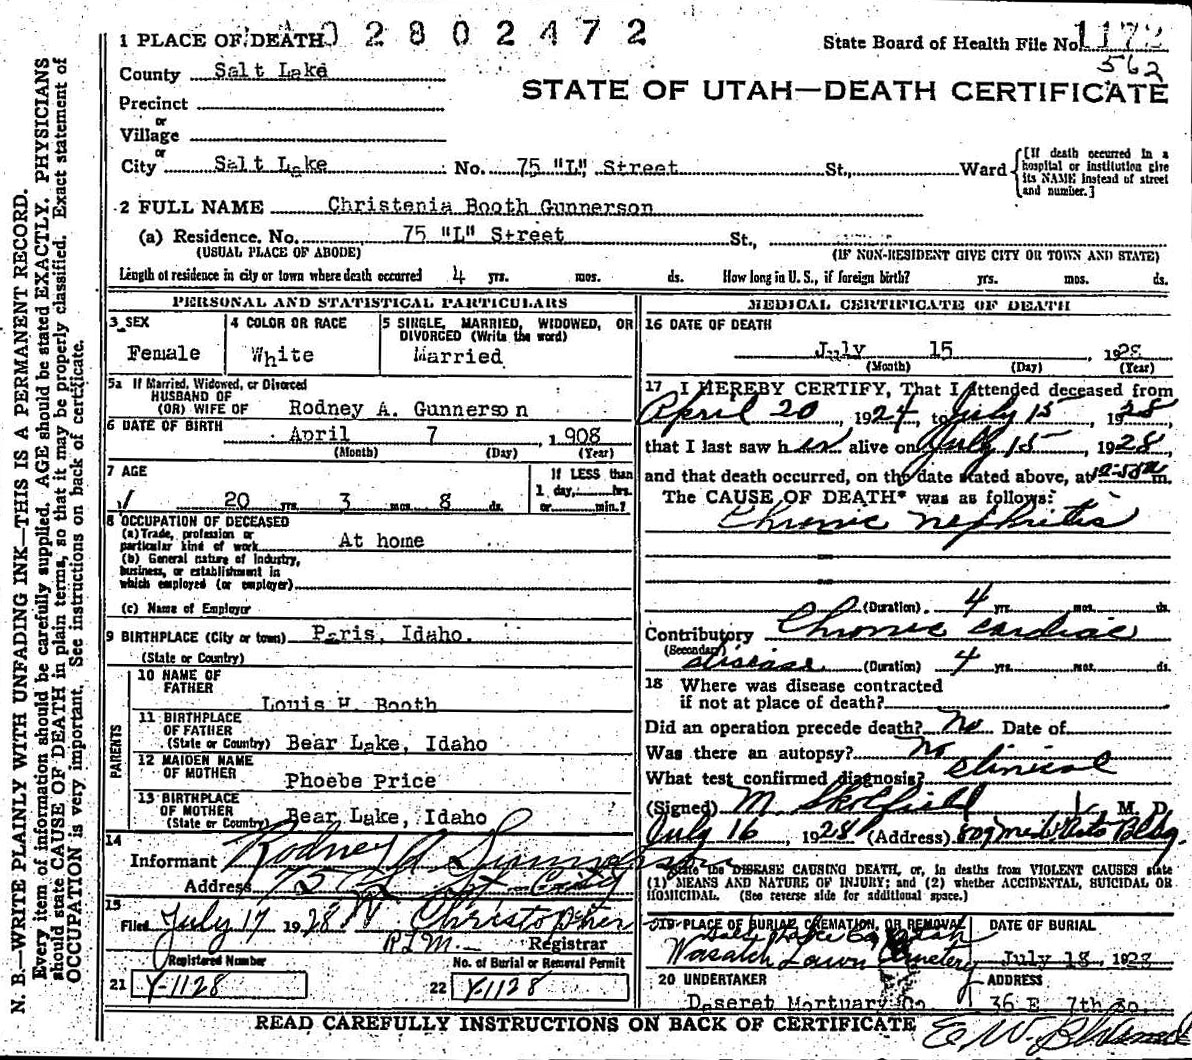 02802472
1 PLACE OF DEATH
State Board of Health File No. 1172
562
County Salt Lake
STATE OF UTAH—DEATH CERTIFICATE
Precinct
or
Village
or
City Salt Lake No. 75 "L" Street St., Ward
[If death occurred in a hospital or institution give its NAME instead of street and number.]
2 FULL NAME Christenia Booth Gunnerson
(a) Residence. No. 75 "L" Street St.,
(USUAL PLACE OF ABODE) (IF NON-RESIDENT GIVE CITY OR TOWN AND STATE)
Length of residence in city or town where death occurred 4 yrs. mos. ds. How long in U. S., if foreign birth? yrs. mos. ds.
PERSONAL AND STATISTICAL PARTICULARS
3 SEX 4 COLOR OR RACE 5 SINGLE, MARRIED, WIDOWED, OR
DIVORCED (Write the word)
Female White Married
5a If Married, Widowed, or Divorced
HUSBAND OF
(OR) WIFE OF Rodney A. Gunnerson
6 DATE OF BIRTH April 7, 1908
(Month) (Day) (Year)
7 AGE If LESS than
20 yrs. 3 mos. 8 ds. 1 day, hrs.
or min.?
8 OCCUPATION OF DECEASED
(a) Trade, profession or
particular kind of work At home
(b) General nature of industry,
business, or establishment in
which employed (or employer)
(c) Name of Employer
9 BIRTHPLACE (City or town) Paris, Idaho.
(State or Country)
PARENTS
10 NAME OF
FATHER
Louis H. Booth
11 BIRTHPLACE
OF FATHER
(State or Country) Bear Lake, Idaho
12 MAIDEN NAME
OF MOTHER Phoebe Price
13 BIRTHPLACE
OF MOTHER
(State or Country) Bear Lake, Idaho
14
Informant Rodney A Gunnerson
Address 75 L St City
15
Filed July 17 1928 W Christopher
R.L.M. Registrar
Registered Number No. of Burial or Removal Permit
21 Y-1128 22 Y-1128
MEDICAL CERTIFICATE OF DEATH
16 DATE OF DEATH
July 15, 1928
(Month) (Day) (Year)
17 I HEREBY CERTIFY, That I attended deceased from
April 20, 1924, to July 15, 1928
that I last saw her alive on July 15, 1928
and that death occurred, on the date stated above, at m.
The CAUSE OF DEATH* was as follows:
Chronic nephritis
(Duration) 4 yrs. mos. ds.
Contributory Chronic cardiac
(Secondary)
disease (Duration) 4 yrs. mos. ds.
18 Where was disease contracted
if not at place of death?
Did an operation precede death? No Date of
Was there an autopsy? No
What test confirmed diagnosis? clinical
(Signed) M Skolfield M. D.
July 16, 1928 (Address) 809 Bldg.
*State the DISEASE CAUSING DEATH, or, in deaths from VIOLENT CAUSES state
(1) MEANS AND NATURE OF INJURY; and (2) whether ACCIDENTAL, SUICIDAL OR
HOMICIDAL. (See reverse side for additional space.)
19 PLACE OF BURIAL, CREMATION, OR REMOVAL DATE OF BURIAL
Salt Lake Co Utah
Wasatch Lawn Cemetery July 18, 1928
20 UNDERTAKER ADDRESS
Deseret Mortuary Co 36 E 7th So.
READ CAREFULLY INSTRUCTIONS ON BACK OF CERTIFICATE
N. B.—WRITE PLAINLY WITH UNFADING INK—THIS IS A PERMANENT RECORD.
Every item of information should be carefully supplied. AGE should be stated EXACTLY. PHYSICIANS
should state CAUSE OF DEATH in plain terms, so that it may be properly classified. Exact statement of
OCCUPATION is very important. See instructions on back of certificate.